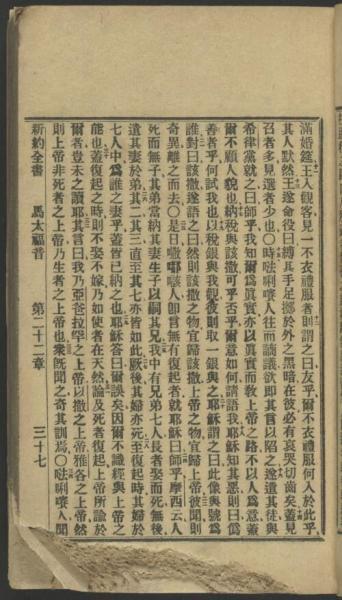 滿婚筵王入觀客見一不衣禮服者則謂之曰友乎爾不衣禮服何入於此乎
其人默然王遂命役曰縛其手足擲於外之黑暗在彼必有哀哭切齒矣蓋見
召者多見選者少也〇時𠵽唎㘔人往而議欲卽其言以陷之遂遣其徒與
希律黨就之曰師乎我知爾爲眞實亦以眞實而敎上帝之路不以人爲意蓋
爾不顧人貌也納稅與該撒可乎否乎爾意如何請語我耶穌知其惡則曰僞
善者乎何試我也以稅銀與我觀彼則取一銀與之耶穌謂之曰此像與號爲
誰對曰該撒遂語之曰然則該撒之物宜歸該撒上帝之物宜歸上帝彼聞則
奇異離之而去〇是日𠵽人卽言無有復起者就耶穌曰師乎摩西云人
死而無子其弟當納其妻生子以嗣其兄我中有兄弟七人長者娶而死無後
遺其妻於弟其二其三直至其七亦皆如此厥後其婦亦死至復起時其婦於
七人中爲誰之妻乎蓋皆已納之也耶穌答曰爾誤矣因爾不識經與上帝之
能也蓋復起之時則不娶不嫁乃如使者在天然論及死者復起上帝所諭於
爾者豈未之讀耶其言曰我乃亞伯拉罕之上帝以撒之上帝雅各之上帝然
則上帝非死者之上帝乃生者之上帝也衆旣聞之奇其訓焉〇𠵽唎㘔人聞
新約全書 馬太福音 第二十二章 三十七